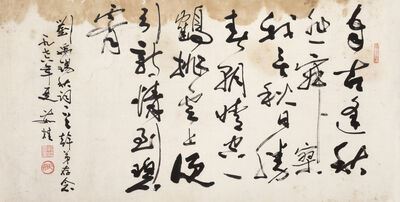 自古逢秋
悲寂寥
我言秋日勝
春朝晴空一
鶴排雲上便
引詩情到碧
霄
劉禹錫秋詞